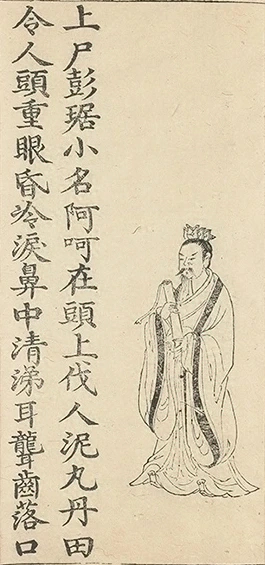 上尸彭琚小名阿呵在頭上伐人泥丸丹田
令人頭重眼昏冷淚鼻中清涕耳聾齒落口